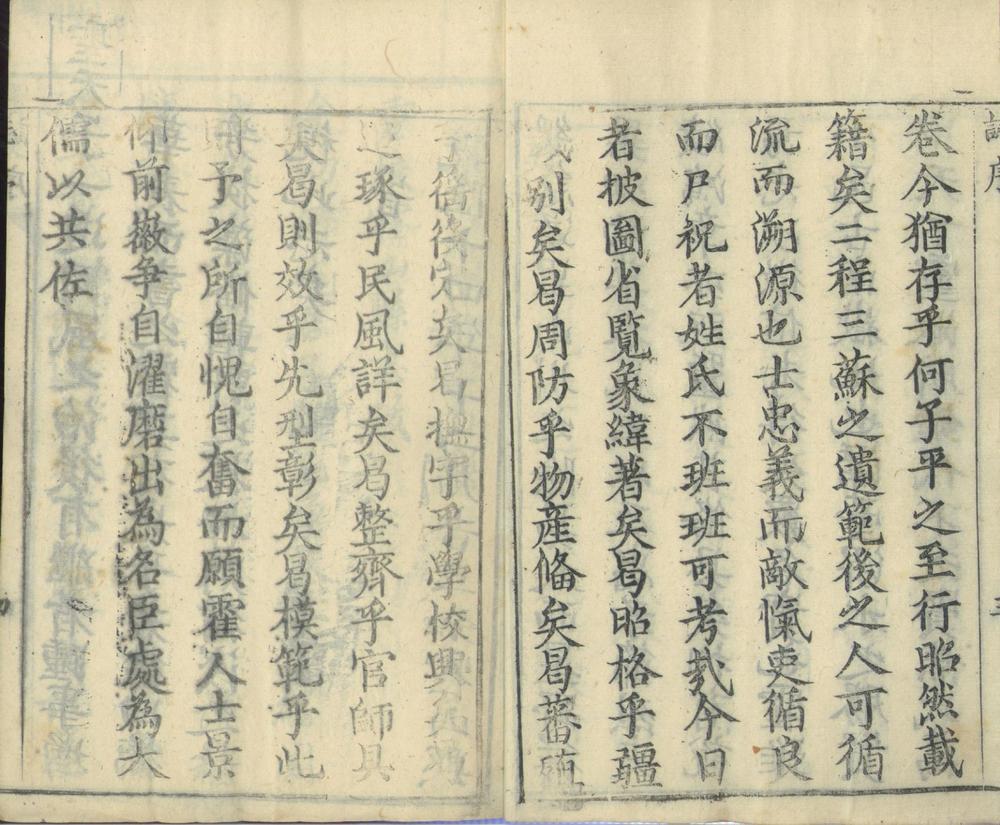 卷今猶存乎何子平之至行昭然載
籍矣二程三蘇之遺範後之人可循
流而溯源也士忠義而敵愾吏循良
而尸祝者姓氏不班班可考㢤今日
者披圖省覽象緯著矣曷昭格乎疆
域別矣曷周防乎物産俻矣曷蕃
矣曷撫字乎學校興矣
琢乎民風詳矣曷整齊乎官師具
矣曷則效乎先型彰矣曷模範乎此
則予之所自愧自奮而願霍人士景
仰前徽争自濯磨出為名臣處為大
儒以共佐